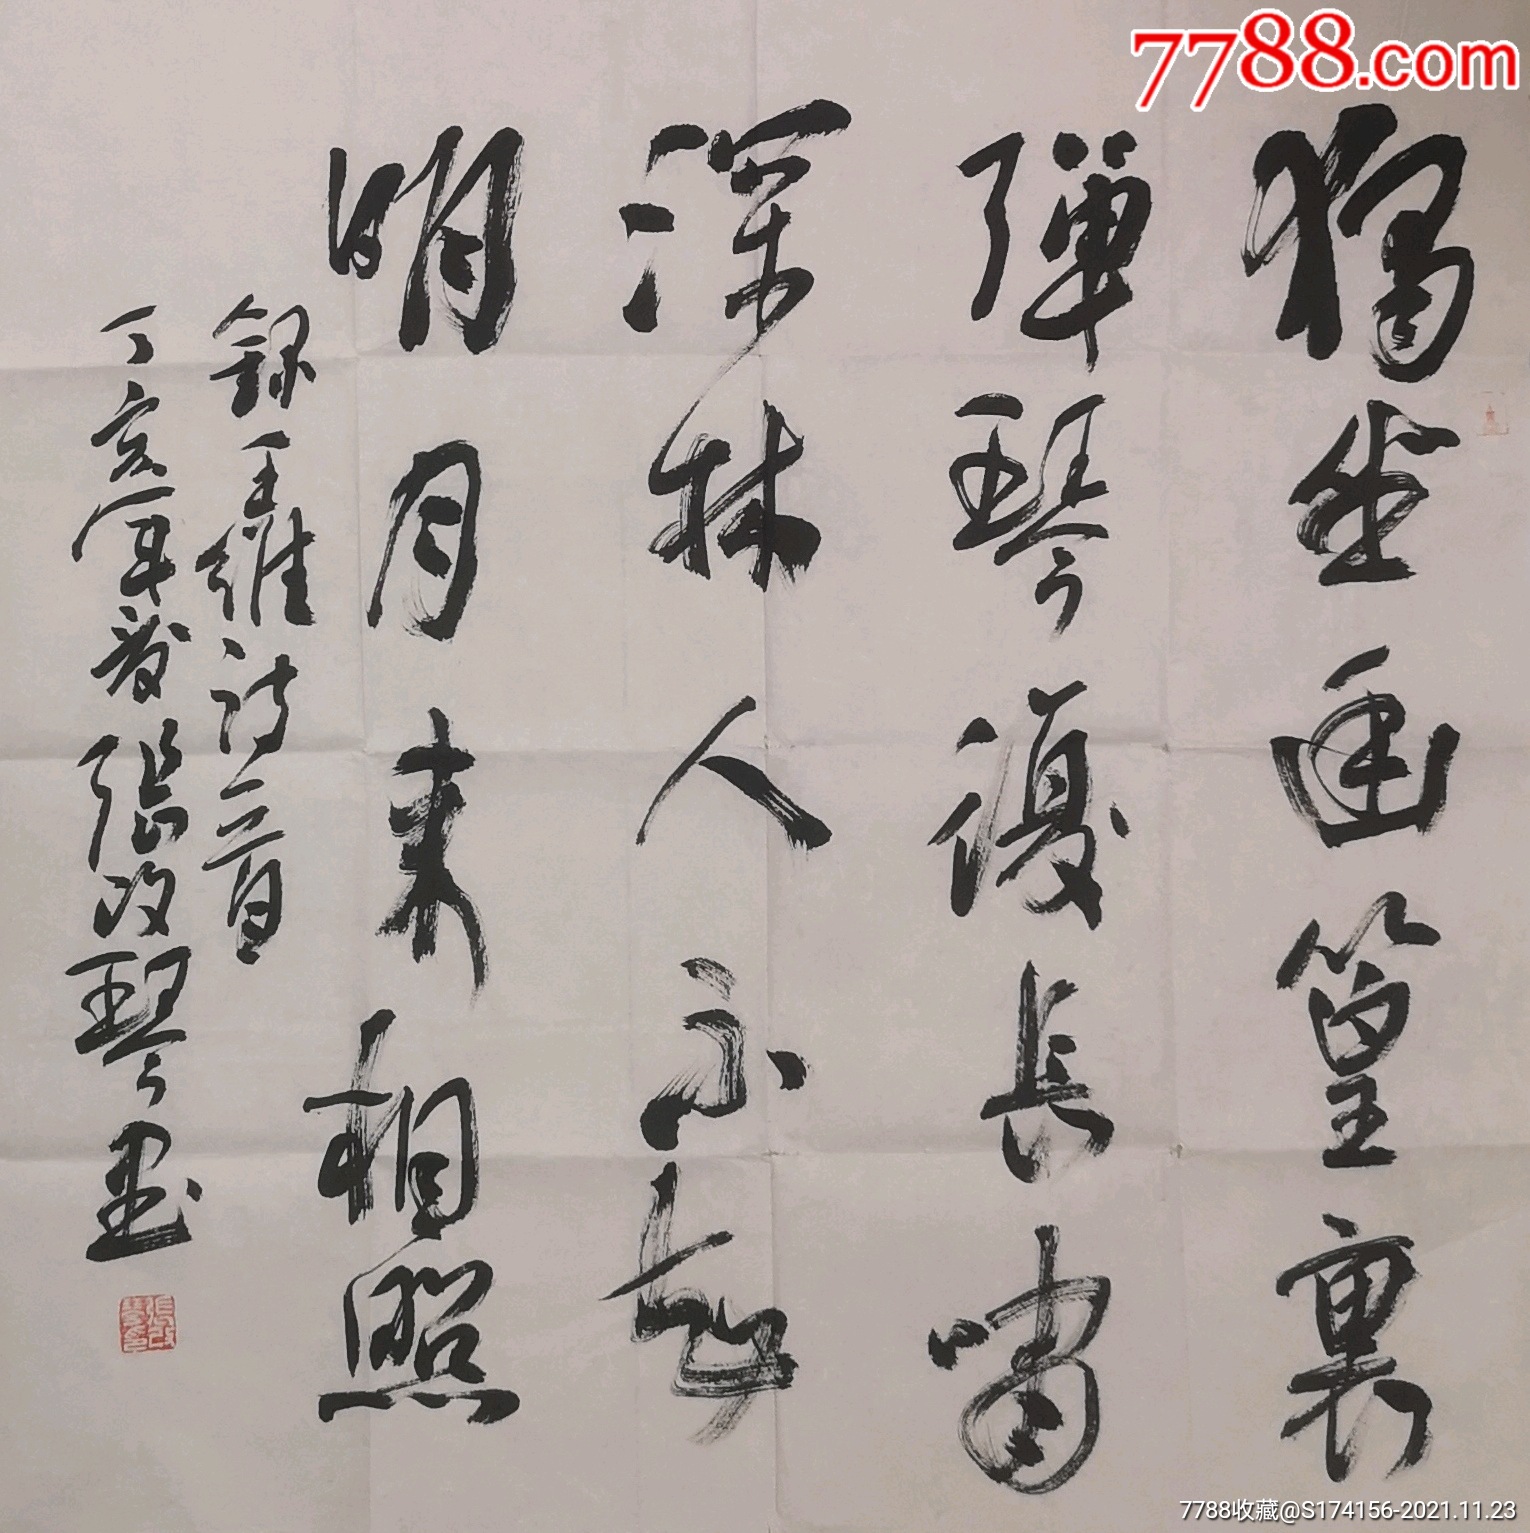 7788.com
獨坐幽篁裏
彈琴復長嘯
深林人不知
明月來相照
錄王維詩一首
丁亥年夏張改琴書
7788收藏@S174156-2021.11.23